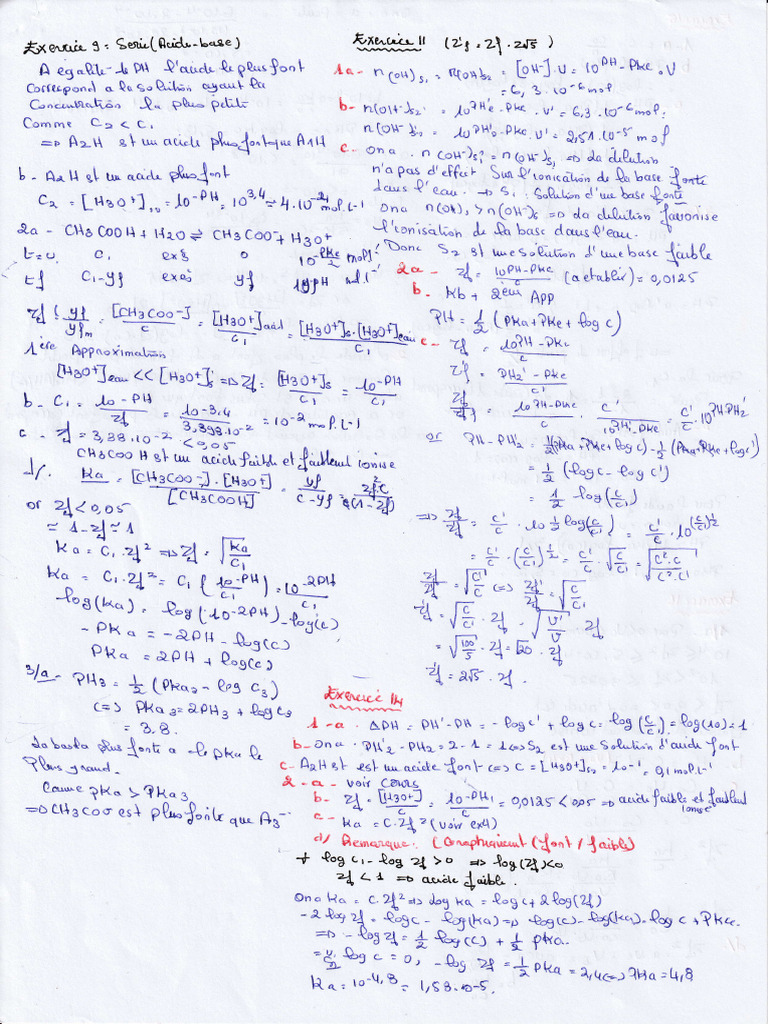 Exercice 9 : Serie (Acide-base)
A égalité de PH l'acide le plus fort
correspond a la solution ayant la
Concentration la plus petite
Comme C2 < C1
=> A2H est un acide plus fort que A1H
b- A2H est un acide plus fort
C2 = [H3O+] = 10-PH = 10 3,4 = 4.10-4 mol.L-1
2a - CH3COOH + H2O ⇌ CH3COO- + H3O+
t=0. C1 exès 0 10-PKe/2 mol.l-1
tf C1-yf exès yf 10-PH mol.l-1
τf = yf/yfm = [CH3COO-]/C = [H3O+]acide/C1 = [H3O+]s-[H3O+]eau/C1
1ère Approximation
[H3O+]eau << [H3O+]s => τf = [H3O+]s/C1 = 10-PH/C1
b- C1 = 10-PH/τf = 10-3,4/3,398.10-2 = 10-2 mol.L-1
c τf = 3,38.10-2 < 0,05
CH3COOH est un acide faible et faiblement ionisé
d/. Ka = [CH3COO-].[H3O+]/[CH3COOH] = yf²/C-yf = τf²C/(1-τf)
or τf < 0,05
≃ 1-τf ≃ 1
Ka = C1.τf² => τf = √Ka/C1
Ka = C1.τf² = C1(10-PH/C1)² = 10-2PH/C1
log(Ka) = log(10-2PH) - log(c)
- PKa = -2PH - log(c)
PKa = 2PH + log(c)
3/a- PH3 = 1/2 (PKa3 - log C3)
<=> PKa3 = 2PH3 + log C3
= 3.8.
La base la plus forte a le PKa le
Plus grand.
Comme PKa > PKa3
=> CH3COO- est plus forte que A3-
Exercice 11 (τ'f = τf . 2√5)
1a- n(OH-)S1 = n(OH-)S2 = [OH-].V = 10PH-PKe.V
= 6,3.10-6 mol.
b- n(OH-)S1' = 10PH'1-PKe.V' = 6,3.10-6 mol.
n(OH-)S'2 = 10PH'2-PKe.V' = 2,51.10-5 mol
c- on a. n(OH-)S'1 = n(OH-)S1 => La dilution
n'a pas d'effet Sur l'ionisation de la base forte
dans l'eau. => S1 : Solution d'une base forte
on a n(OH-)S'2 > n(OH-)S2 => La dilution favorise
l'ionisation de la base dans l'eau.
Donc S2 est une solution d'une base faible
2a- τf = 10PH-PKe/C (a etablir) = 0,0125
b. Kb + 2ème App
PH = 1/2 (PKa + PKe + log c)
c- τf = 10PH-PKe/C
τ'f = PH2'-PKe/C'
τf/τ'f = 10PH-PKe/C . C'/10PH'-PKe = C'/C . 10PH-PH2'
or PH-PH2' = 1/2(PKa+PKe+log c) - 1/2(PKa+PKe+log c')
= 1/2 (log c - log c')
= 1/2 log(c/c')
=> τf/τ'f = C'/C . 10 1/2 log(c/c') = C'/C . 10(c/c')1/2
= C'/C . (C/C')1/2 = C'/C . √C/C' = √C'².C/C².C'
τf/τ'f = √C'/C <=> τ'f/τf = √C/C'
τ'f = √C/C' . τf = √V'/V . τf
= √100/5 . τf = √20 . τf
τ'f = 2√5 . τf.
Exercice 14
1-a. ΔPH = PH'-PH = -log c' + log c = log(c/c') = log(10) = 1
b- On a. PH'2 - PH2 = 2 - 1 = 1 <=> S2 est une Solution d'acide fort
c- A2H est est un acide fort <=> C = [H3O+]S2 = 10-1 = 0,1 mol.L-1
2-a- voir cours
b- τf = [H3O+]/C = 10-PH1/C = 0,0125 < 0,05 => acide faible et faiblement ionisé
c- Ka = C.τf² (voir ex4)
d/ Remarque : (Graphiquement (fort / faible)
+ log C1 - log τf > 0 => log(τf) < 0
τf < 1 => acide faible.
On a Ka = C.τf² => log Ka = log c + 2 log(τf)
-2 log τf = log c - log(Ka) => log(c) - log(Ka) = log c + PKa
=> - log τf = 1/2 log(c) + 1/2 PKa.
log c = 0, - log τf = 1/2 PKa = 2,4 <=> PKa = 4,8
Ka = 10-4,8 = 1,58.10-5.